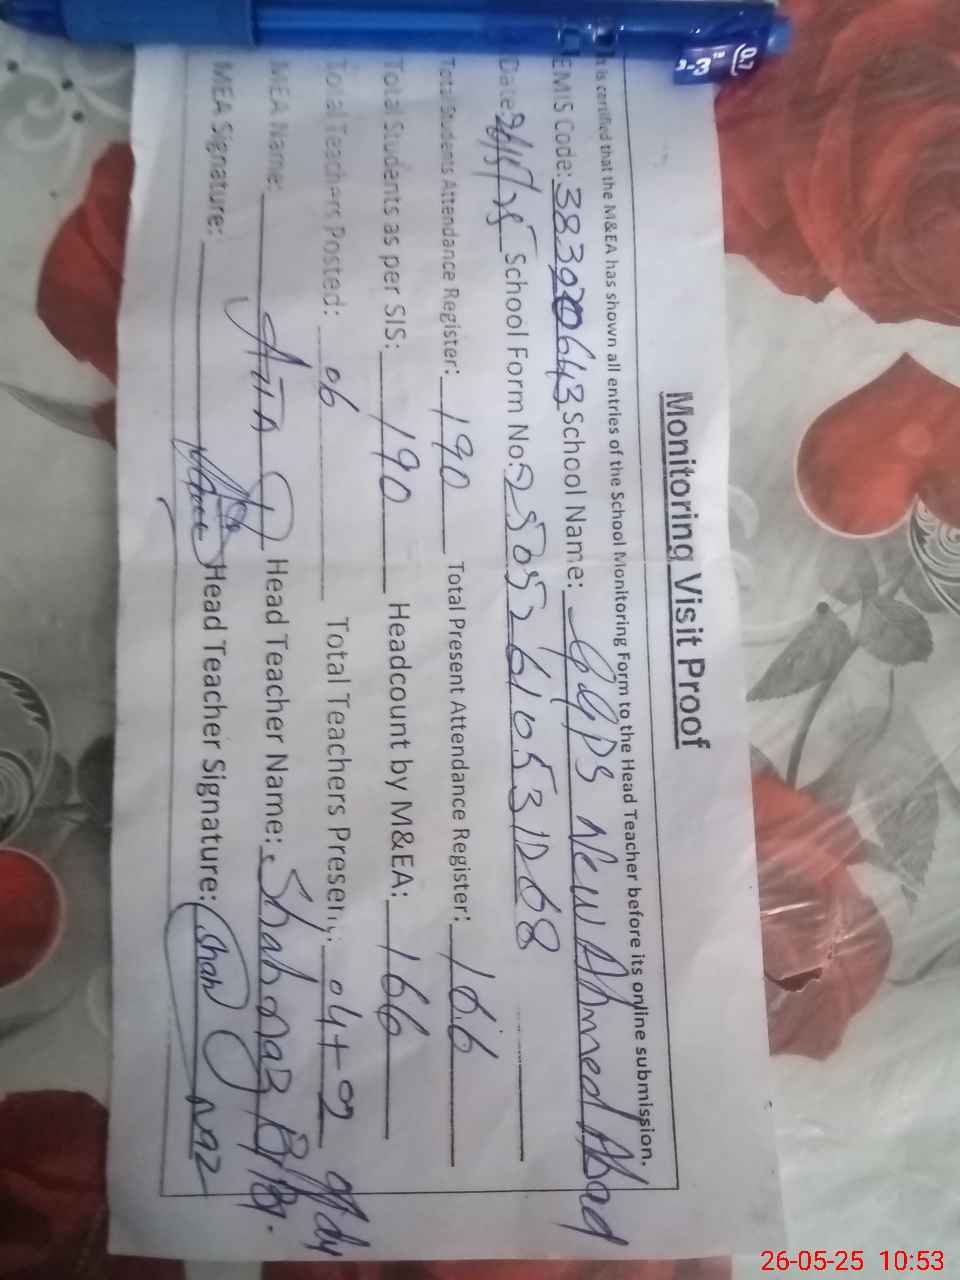 Monitoring Visit Proof
It is certified that the M&EA has shown all entries of the School Monitoring Form to the Head Teacher before its online submission.
EMIS Code: 383 643 School Name: GGPS New Ahmed Abad
Date: 26/5/25 School Form No: 25052610531208
Total Students Attendance Register: 190 Total Present Attendance Register: 166
Total Students as per SIS: 190 Headcount by M&EA: 166
Total Teachers Posted: 06 Total Teachers Present: 04+2
MEA Name: Head Teacher Name: Shahnaz Bibi
MEA Signature: Head Teacher Signature: Shah Naz
0.7
26-05-25 10:53